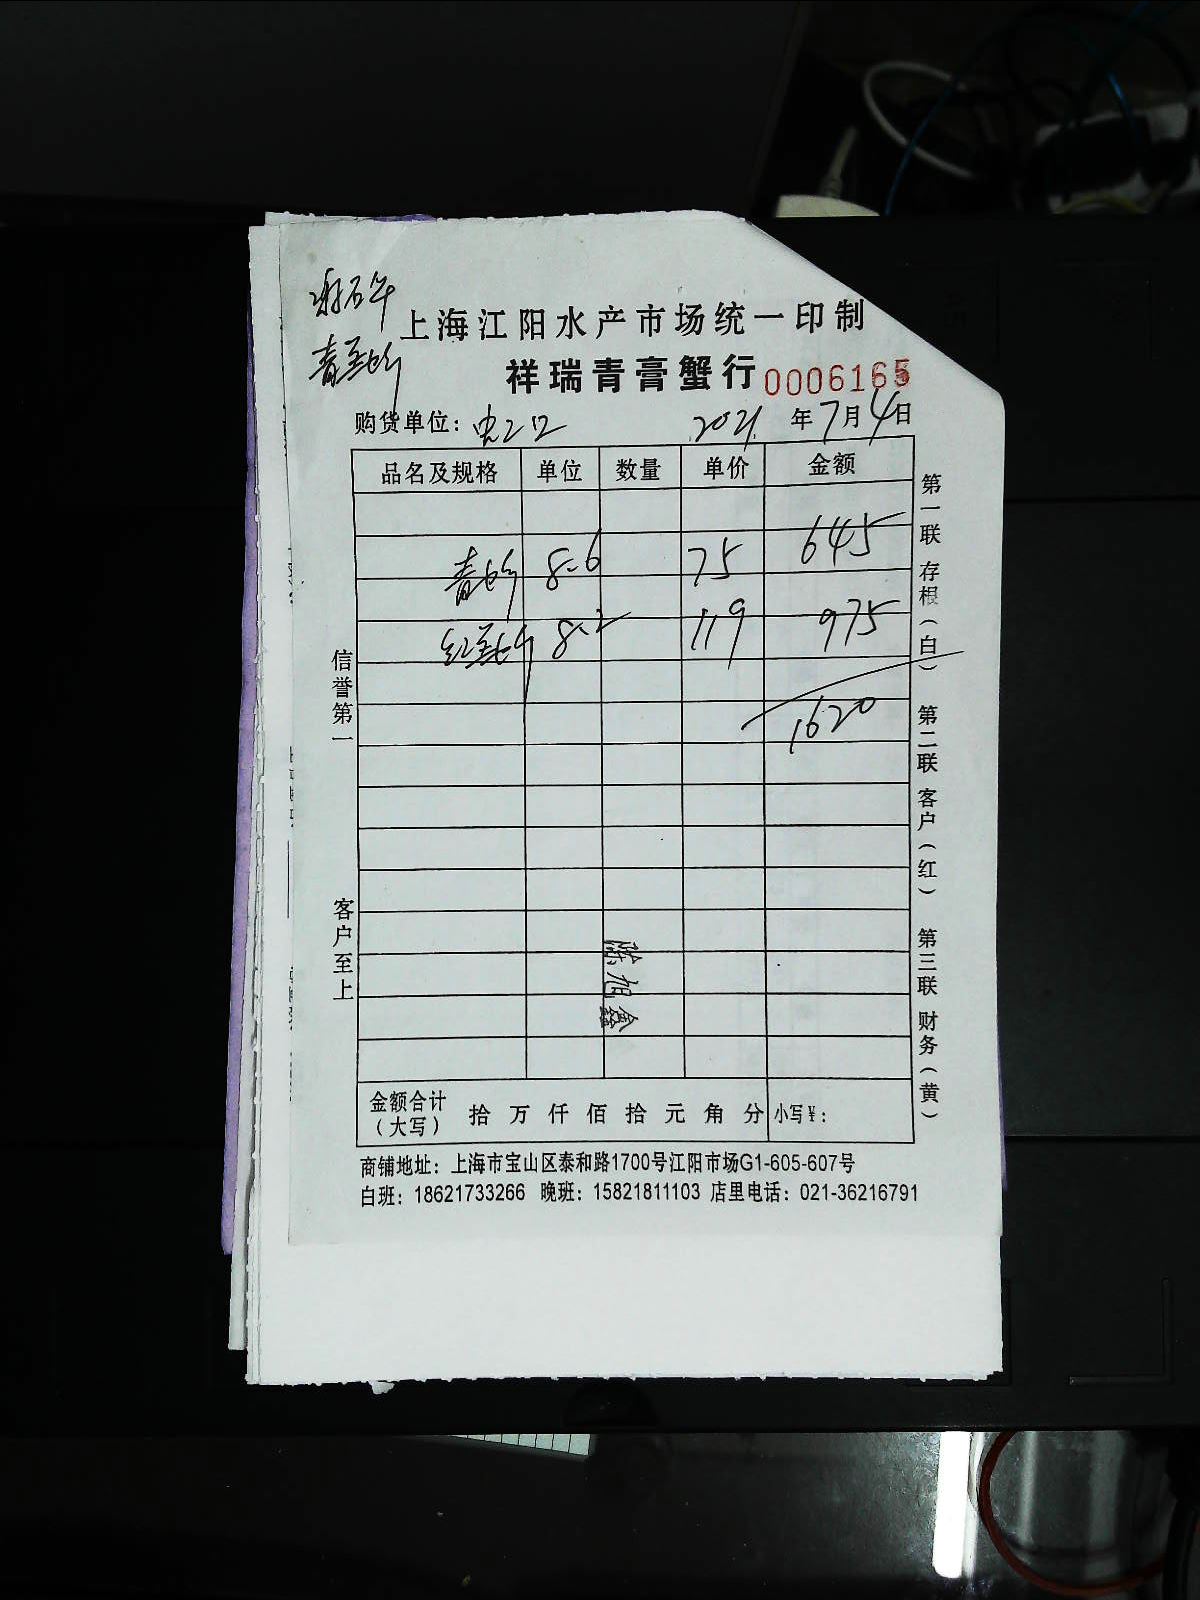 上海江阳水产市场统一印制
祥瑞青膏蟹行 0006165
购货单位： 2021年7月4日
品名及规格 单位 数量 单价 金额
青 8.6 75 645
红 8.2 119 975
1620
陈旭鑫
金额合计（大写） 拾 万 仟 佰 拾 元 角 分 小写￥：
信誉第一
客户至上
第一联 存根（白）
第二联 客户（红）
第三联 财务（黄）
商铺地址：上海市宝山区泰和路1700号江阳市场G1-605-607号
白班：18621733266 晚班：15821811103 店里电话：021-36216791